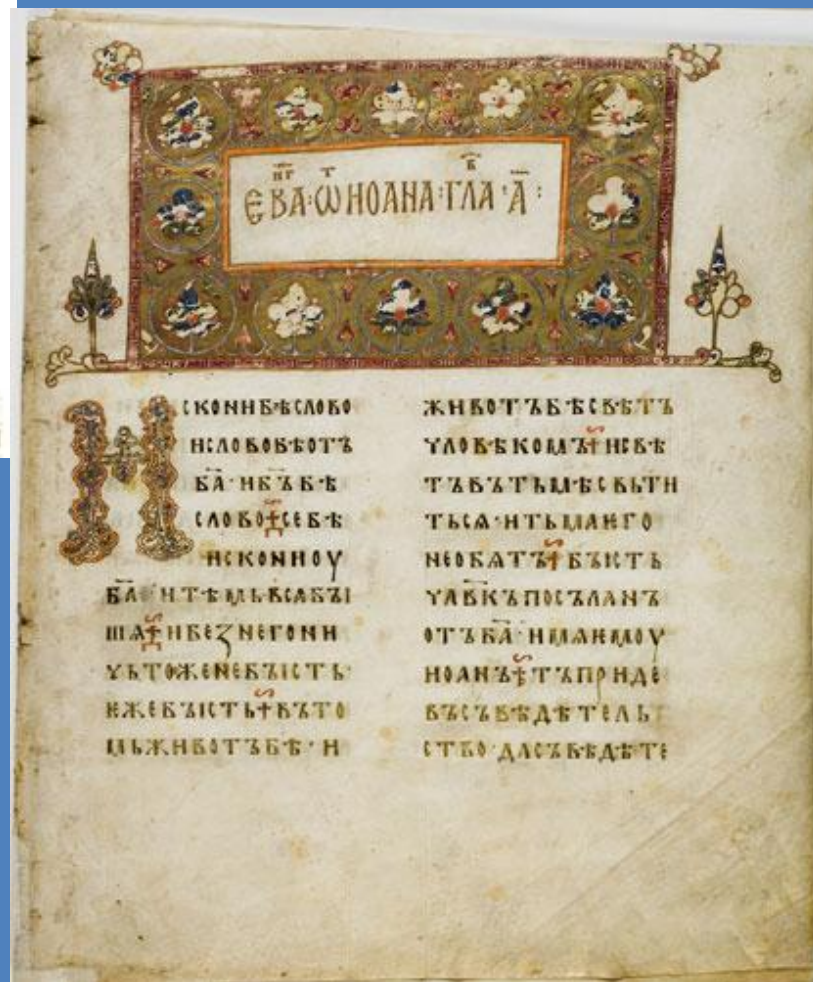 ЕВА҃НГ · ѾИОАНА · ГЛАВ · А҃ :
ИСКОНИБѢСЛОВО
ИСЛОВОБѢОТЪ
Б҃А · ИБ҃ЪБѢ
СЛОВО ⁘ СЕБѢ
ИСКОНИОУ
Б҃А · ИТѢМЬВЬСѦБꙐ
ШѦ ⁘ ИБЕЗНЕГОНИ
ЧЬТОЖЕНЕБꙐСТЬ ·
ѤЖЕБꙐСТЬ ⁘ ВЪТО
МЬЖИВОТЪБѢ · И
ЖИВОТЪБѢСВѢТЪ
ЧЛОВѢКОМЪ ⁘ ИСВѢ
ТЪВЪТЬМѢСВЬТИ
ТЬСѦ · ИТЬМАѤГО
НЕОБѦТЪ ⁘ БꙐСТЬ
ЧЛ҃ВКЪПОСЪЛАНЪ
ОТЪБ҃А · ИМѦѤМОУ
ИОАНЪ ⁘ ТЪПРИДЕ
ВЪСЪВѢДѢТЕЛЬ
СТВО · ДАСЪВѢДѢТЕ